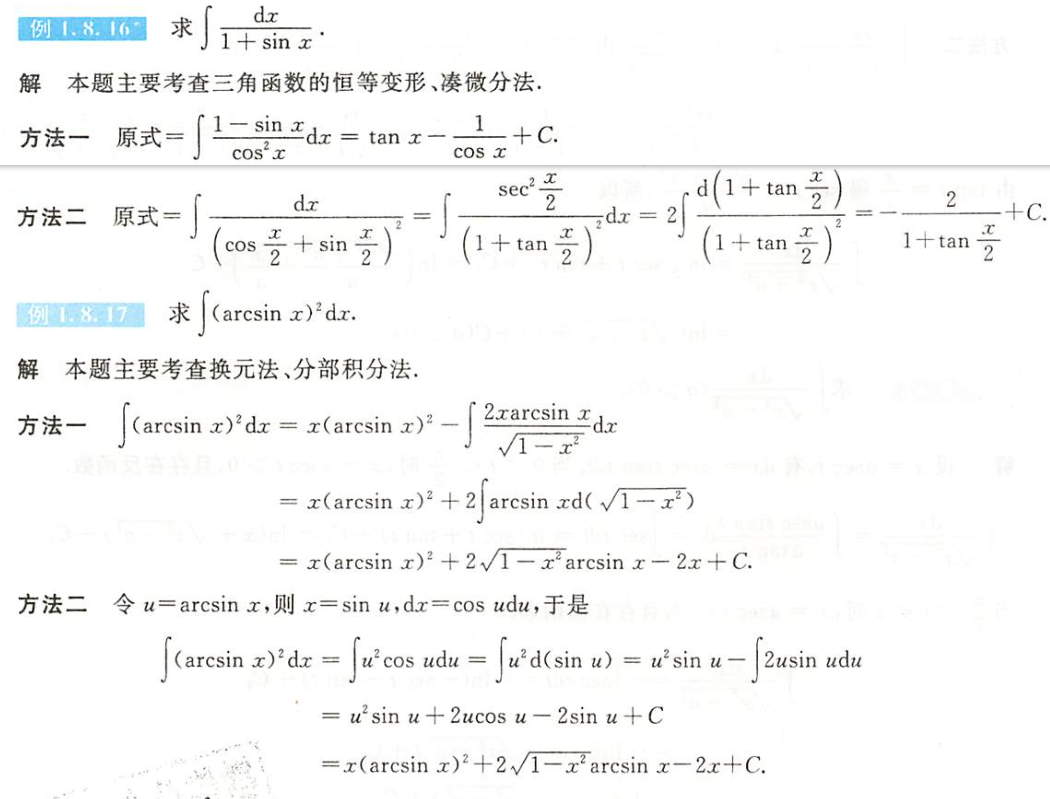 例 1.8.16* 求 ∫ dx/(1+sin x).
解 本题主要考查三角函数的恒等变形、凑微分法.
方法一 原式=∫ (1−sin x)/(cos² x) dx = tan x − 1/(cos x) + C.
方法二 原式=∫ dx/(cos x/2 + sin x/2)² = ∫ (sec² x/2)/(1+tan x/2)² dx = 2∫ d(1+tan x/2)/(1+tan x/2)² = − 2/(1+tan x/2) + C.
例 1.8.17 求 ∫(arcsin x)²dx.
解 本题主要考查换元法、分部积分法.
方法一 ∫(arcsin x)²dx = x(arcsin x)² − ∫ (2xarcsin x)/√(1−x²) dx
= x(arcsin x)² + 2∫arcsin xd(√(1−x²))
= x(arcsin x)² + 2√(1−x²) arcsin x − 2x + C.
方法二 令 u=arcsin x,则 x=sin u,dx=cos udu,于是
∫(arcsin x)²dx = ∫u²cos udu = ∫u²d(sin u) = u²sin u − ∫2usin udu
= u²sin u + 2ucos u − 2sin u + C
=x(arcsin x)²+2√(1−x²) arcsin x−2x+C.